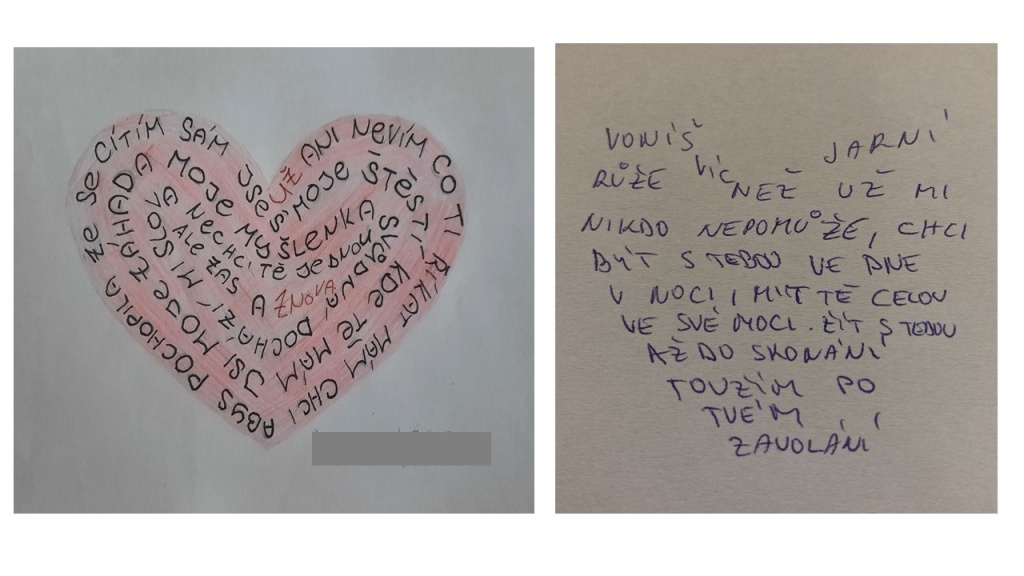 UŽ ANI NEVÍM CO TI ŘÍKAT MÁM CHCI ABYS POCHOPILA ŽE SE CÍTÍM SÁM
JSEŠ MOJE ŠTĚSTÍ, KDE TĚ MÁM JSI MOJE ZÁHADA
MOJE MYŠLENKA SVŮDNÁ, DOCHÁZÍ, MI SLOVA
NECHCI TĚ JEDNOU
ALE ZAS A ZNOVA
VONÍŠ JARNÍ
RŮŽE VÍC NEŽ UŽ MI
NIKDO NEPOMŮŽE, CHCI
BÝT S TEBOU VE DNE
V NOCI, MÍT TĚ CELOU
VE SVÉ MOCI. ŽÍT S TEBOU
AŽ DO SKONÁNÍ
TOUŽÍM PO
TVÉM
ZAVOLÁNÍ